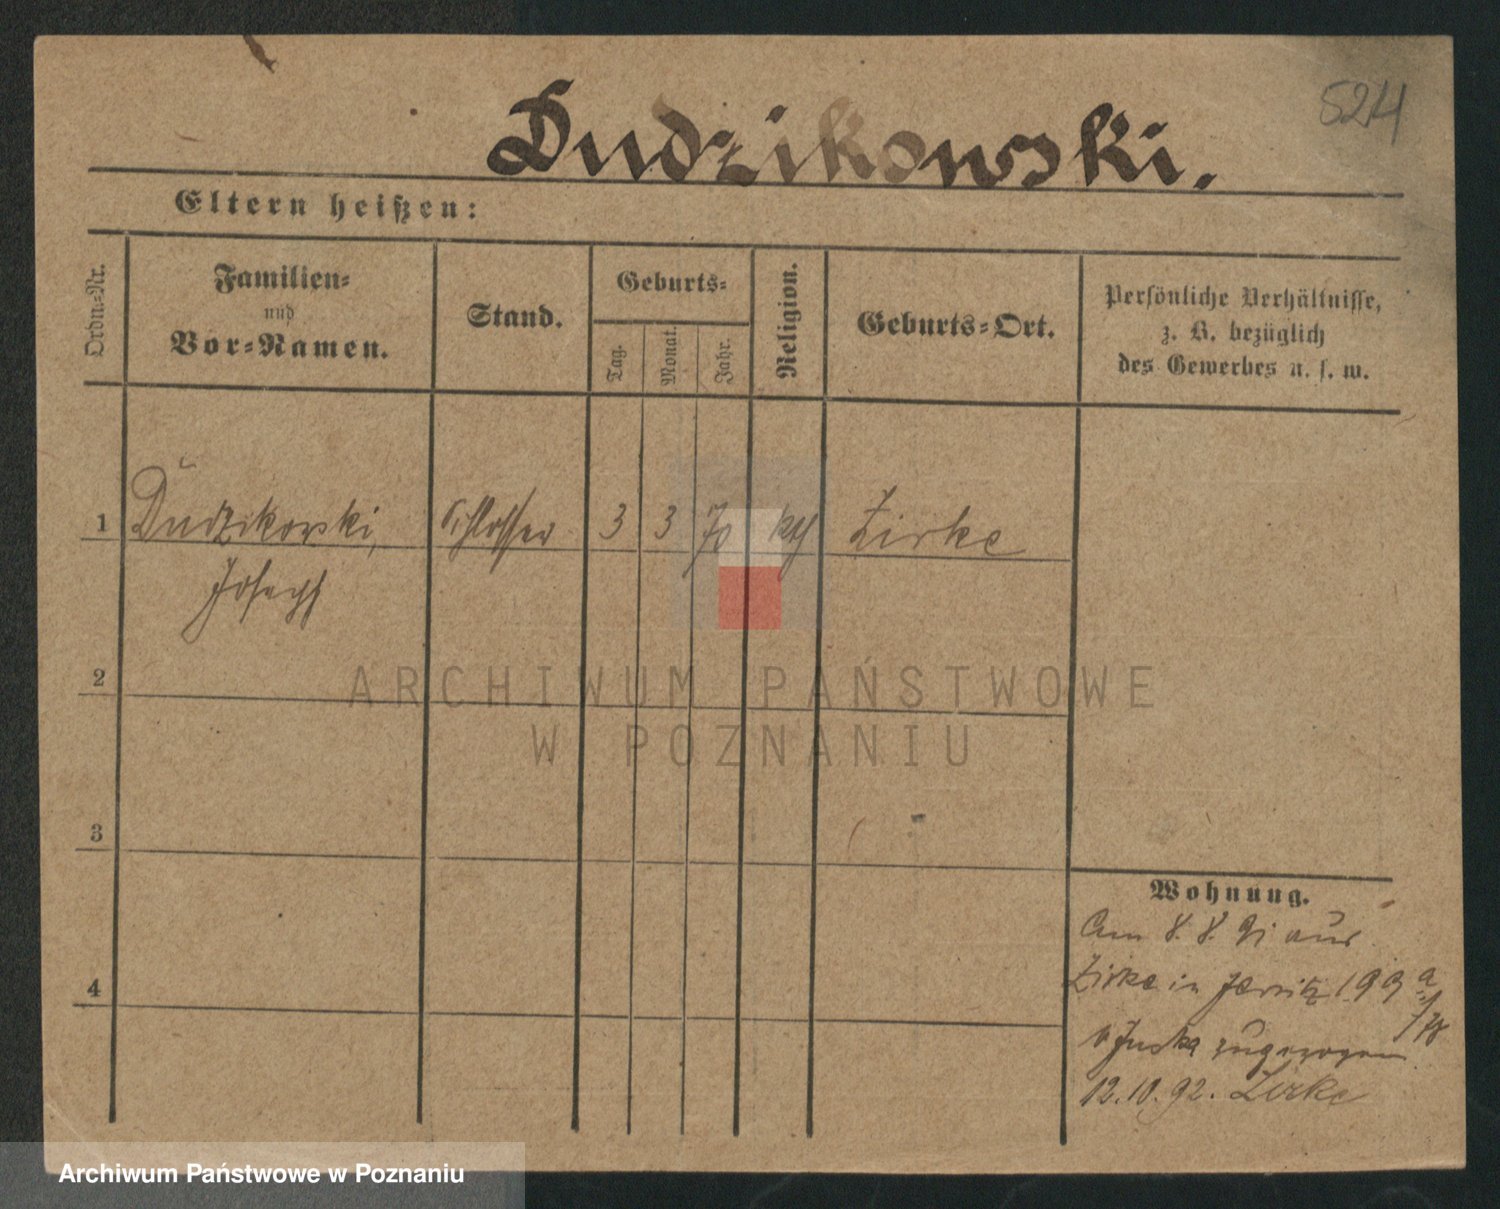 524
Dudzikowski.
Eltern heißen:
Ordn.=Nr.
Familien=
und
Vor=Namen.
Stand.
Geburts=
Tag.
Monat.
Jahr.
Religion.
Geburts=Ort.
Persönliche Verhältnisse,
z. B. bezüglich
des Gewerbes u. s. w.
1 Dudzikowski, Schlosser 3 3 70 kth Zirke
Joseph
2
3
4
ARCHIWUM PAŃSTWOWE
W POZNANIU
Wohnung.
Am 8. 8. 91 aus
Zirke in Jersitz 199 a
zugezogen
12.10.92. Zirke
Archiwum Państwowe w Poznaniu